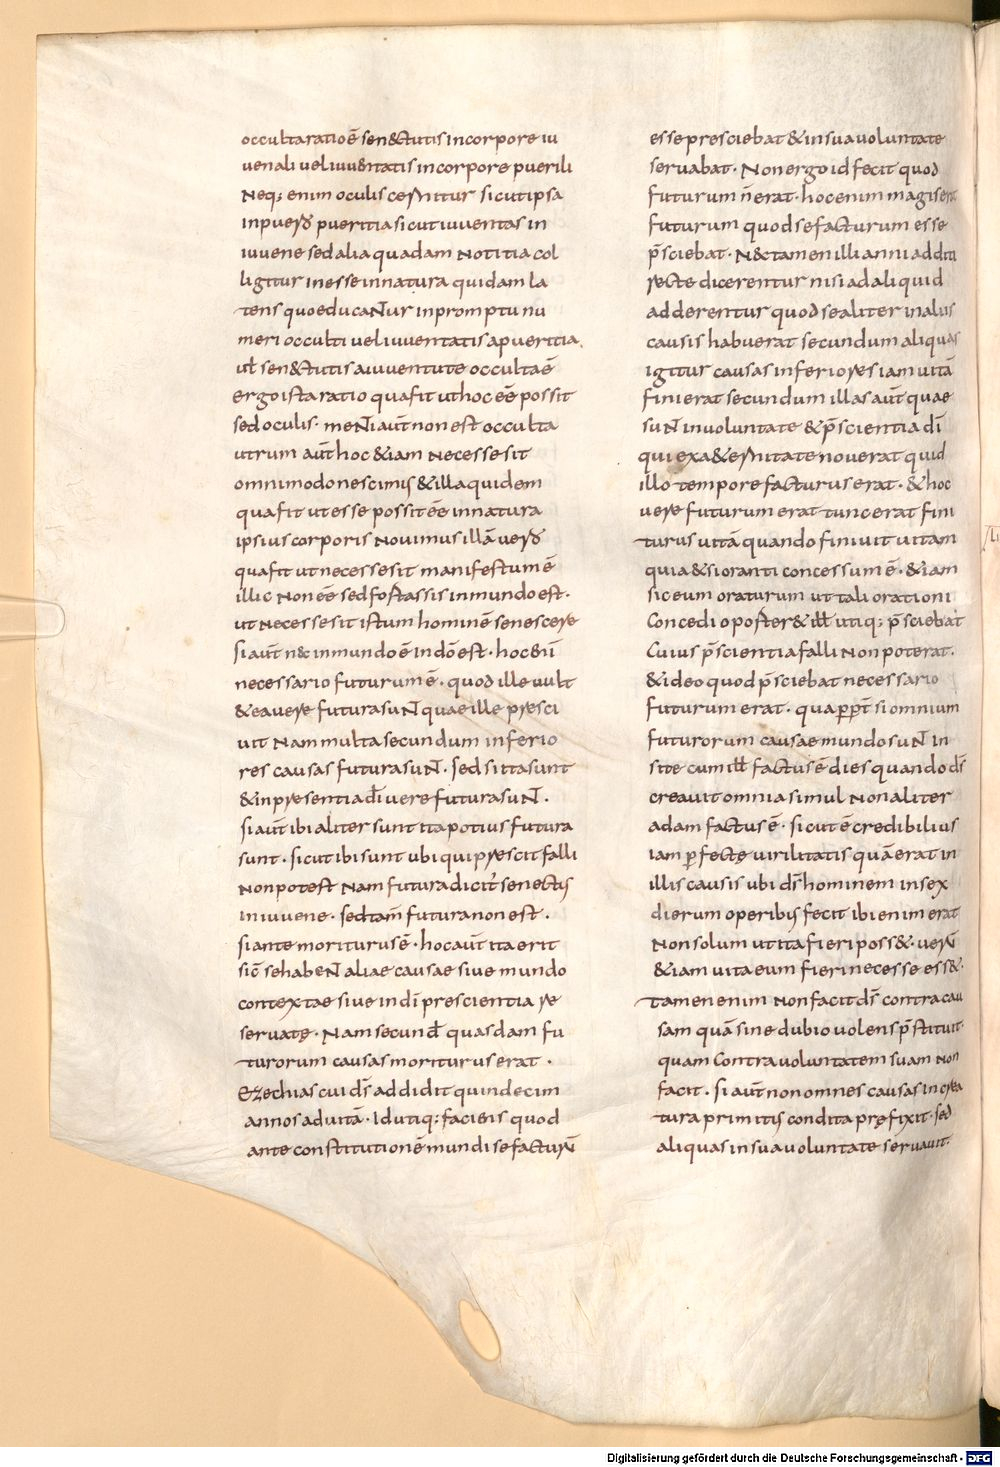 occulta ratio ē sen&tutis incorpore iu
uenali uel iuu&ntatis incorpore puerili
Neq; enim oculis cernitur sicut ipsa
inpuero pueritia sicut iuuentas in
iuuene sed alia quadam Notitia col
ligitur inesse innatura quidam la
tens quo educaNtur inpromptu nu
meri occulti uel iuuentatis apueritia
uł sen&tutis aiuuentute occulta ē
ergo ista ratio qua fit ut hoc eē possit
sed oculis· meNti aūt non est occulta
utrum aūt hoc &iam Necesse sit
omnimodo nescimus & illa quidem
qua fit ut esse possit eē innatura
ipsius corporis Nouimus illā uero
qua fit ut necesse sit manifestum ē
illic Non eē sed fortassis inmundo est·
ut Necesse sit istum hominē senescere
si aūt n& inmundo ē in dō est· hoc eni
necessario futurum ē· quod ille uult
& ea uere futura suNt quae ille presci
uit Nam multa secundum inferio
res causas futura suNt· sed si ita sunt
& inpresentia dī uere futura suNt·
si aūt ibi aliter sunt ita potius futura
sunt· sicut ibi sunt ubi qui prescit falli
Non potest Nam futura dicit senectus
in iuuene· sed tam̄ futura non est·
si ante moriturus ē· hoc aūt ita erit
sic̄ se habeNt aliae causae siue mundo
contextae siue in dī prescientia re
seruatę· Nam secund̄ quasdam fu
turorum causas moriturus erat·
Ezechias cui dś addidit quindecim
annos ad uitā· Id utiq; faciens quod
ante constitutionē mundi se facturū
esse presciebat & insua uoluntate
seruabat· Non ergo id fecit quod
futurum n̄ erat· hoc enim magis erat
futurum quod se facturum esse
p̄sciebat· N& tamen illi anni additi
recte dicerentur nisi ad aliquid
adderentur quod se aliter in aliis
causis habuerat secundum aliquas
igitur causas inferiores iam uitā
finierat secundum illas aūt quae
suNt in uoluntate & p̄scientia dī
qui ex a&ernitate nouerat quid
illo tempore facturus erat· & hoc
uere futurum erat tunc erat fini
turus uitā quando finiuit uitam
quia & si oranti concessum ē· & iam
sic eum oraturum ut tali orationi
Concedi oporter& ille utiq; p̄sciebat
Cuius p̄scientia falli Non poterat·
& ideo quod p̄sciebat necessario
futurum erat· quappt̄ si omnium
futurorum causae mundo suNt in
site cum ille factus ē dies quando dś
creauit omnia simul Non aliter
adam factus ē· sicut ē credibilius
iam pfectę uirilitatis quā erat in
illis causis ubi dś hominem in sex
dierum operibus fecit ibi enim erat
Non solum ut ita fieri poss&· uerū
& iam ut ita eum fieri necesse ess&·
tamen enim Non facit dś contra cau
sam quā sine dubio uolens p̄stituit·
quam Contra uoluntatem suam Non
facit· si aūt non omnes causas in crea
tura primitus condita prefixit· sed
aliquas in sua uoluntate seruauit·
Digitalisierung gefördert durch die Deutsche Forschungsgemeinschaft · DFG